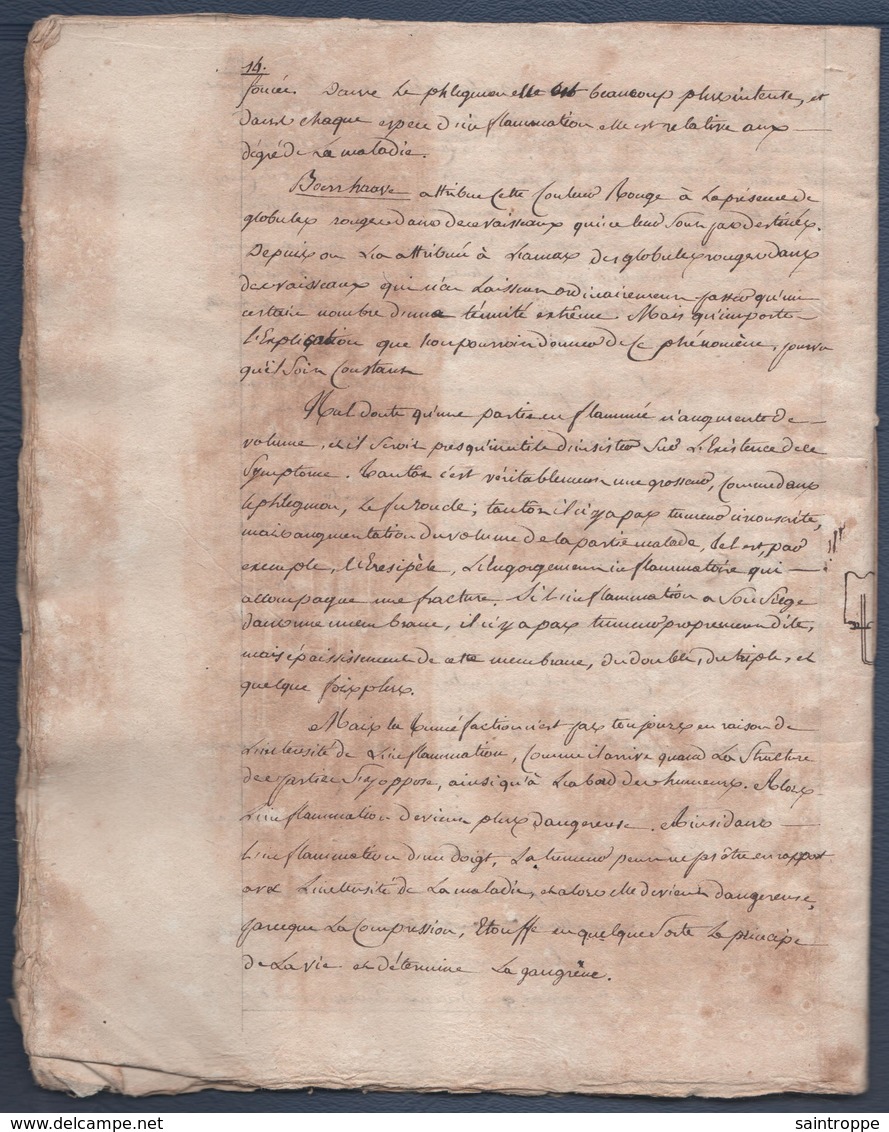 14.
foncée. Dans Le phlegmon elle est beaucoup plus intense, et
dans chaque espece d'inflammation elle est relative aux
dégré de La maladie.
Boerrhaave attribue Cette Couleur Rouge à La présence de
globules rouges dans des vaisseaux qui ne leur sont pas destinés.
Depuis on L'a attribué à L'amas des globules rouges dans
des vaisseaux qui n'en Laissent ordinairement passer qu'un
certain nombre d'une ténuité extrême. Mais qu'importe
l'Explication que l'on pourroit donner de Ce phénomène, pourvu
qu'il Soit Constant
Nul doute qu'une partie enflammée n'augmente de
volume, et il seroit presqu'inutile d'insister Sur L'Existence de ce
Symptome. Tantôt c'est véritablement une grosseur, comme dans
le phlegmon, Le furoncle; tantôt il n'y a pas tumeur circonscrite,
mais augmentation du volume de la partie malade, tel est, par
exemple, l'Eresipèle, L'Engorgement inflammatoire qui
accompagne une fracture. Si L'inflammation a Son Siège
dans une membrane, il n'y a pas tumeur proprement dite,
mais épaississement de cette membrane, du double, du triple, et
quelque fois plus.
Mais la tuméfaction n'est pas toujours en raison de
L'intensité de L'inflammation, Comme il arrive quand La Structure
des parties S'y oppose, ainsi qu'à L'abord des humeurs. Alors
L'inflammation devient plus dangereuse. Ainsi dans
L'inflammation d'un doigt, La tumeur peut ne pas être en rapport
avec L'intensité de La maladie, et alors elle devient dangereuse,
parceque La Compression, Etouffe en quelque Sorte Le principe
de La vie et détermine La gangrène.
saintroppe